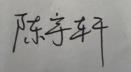 陈宇轩